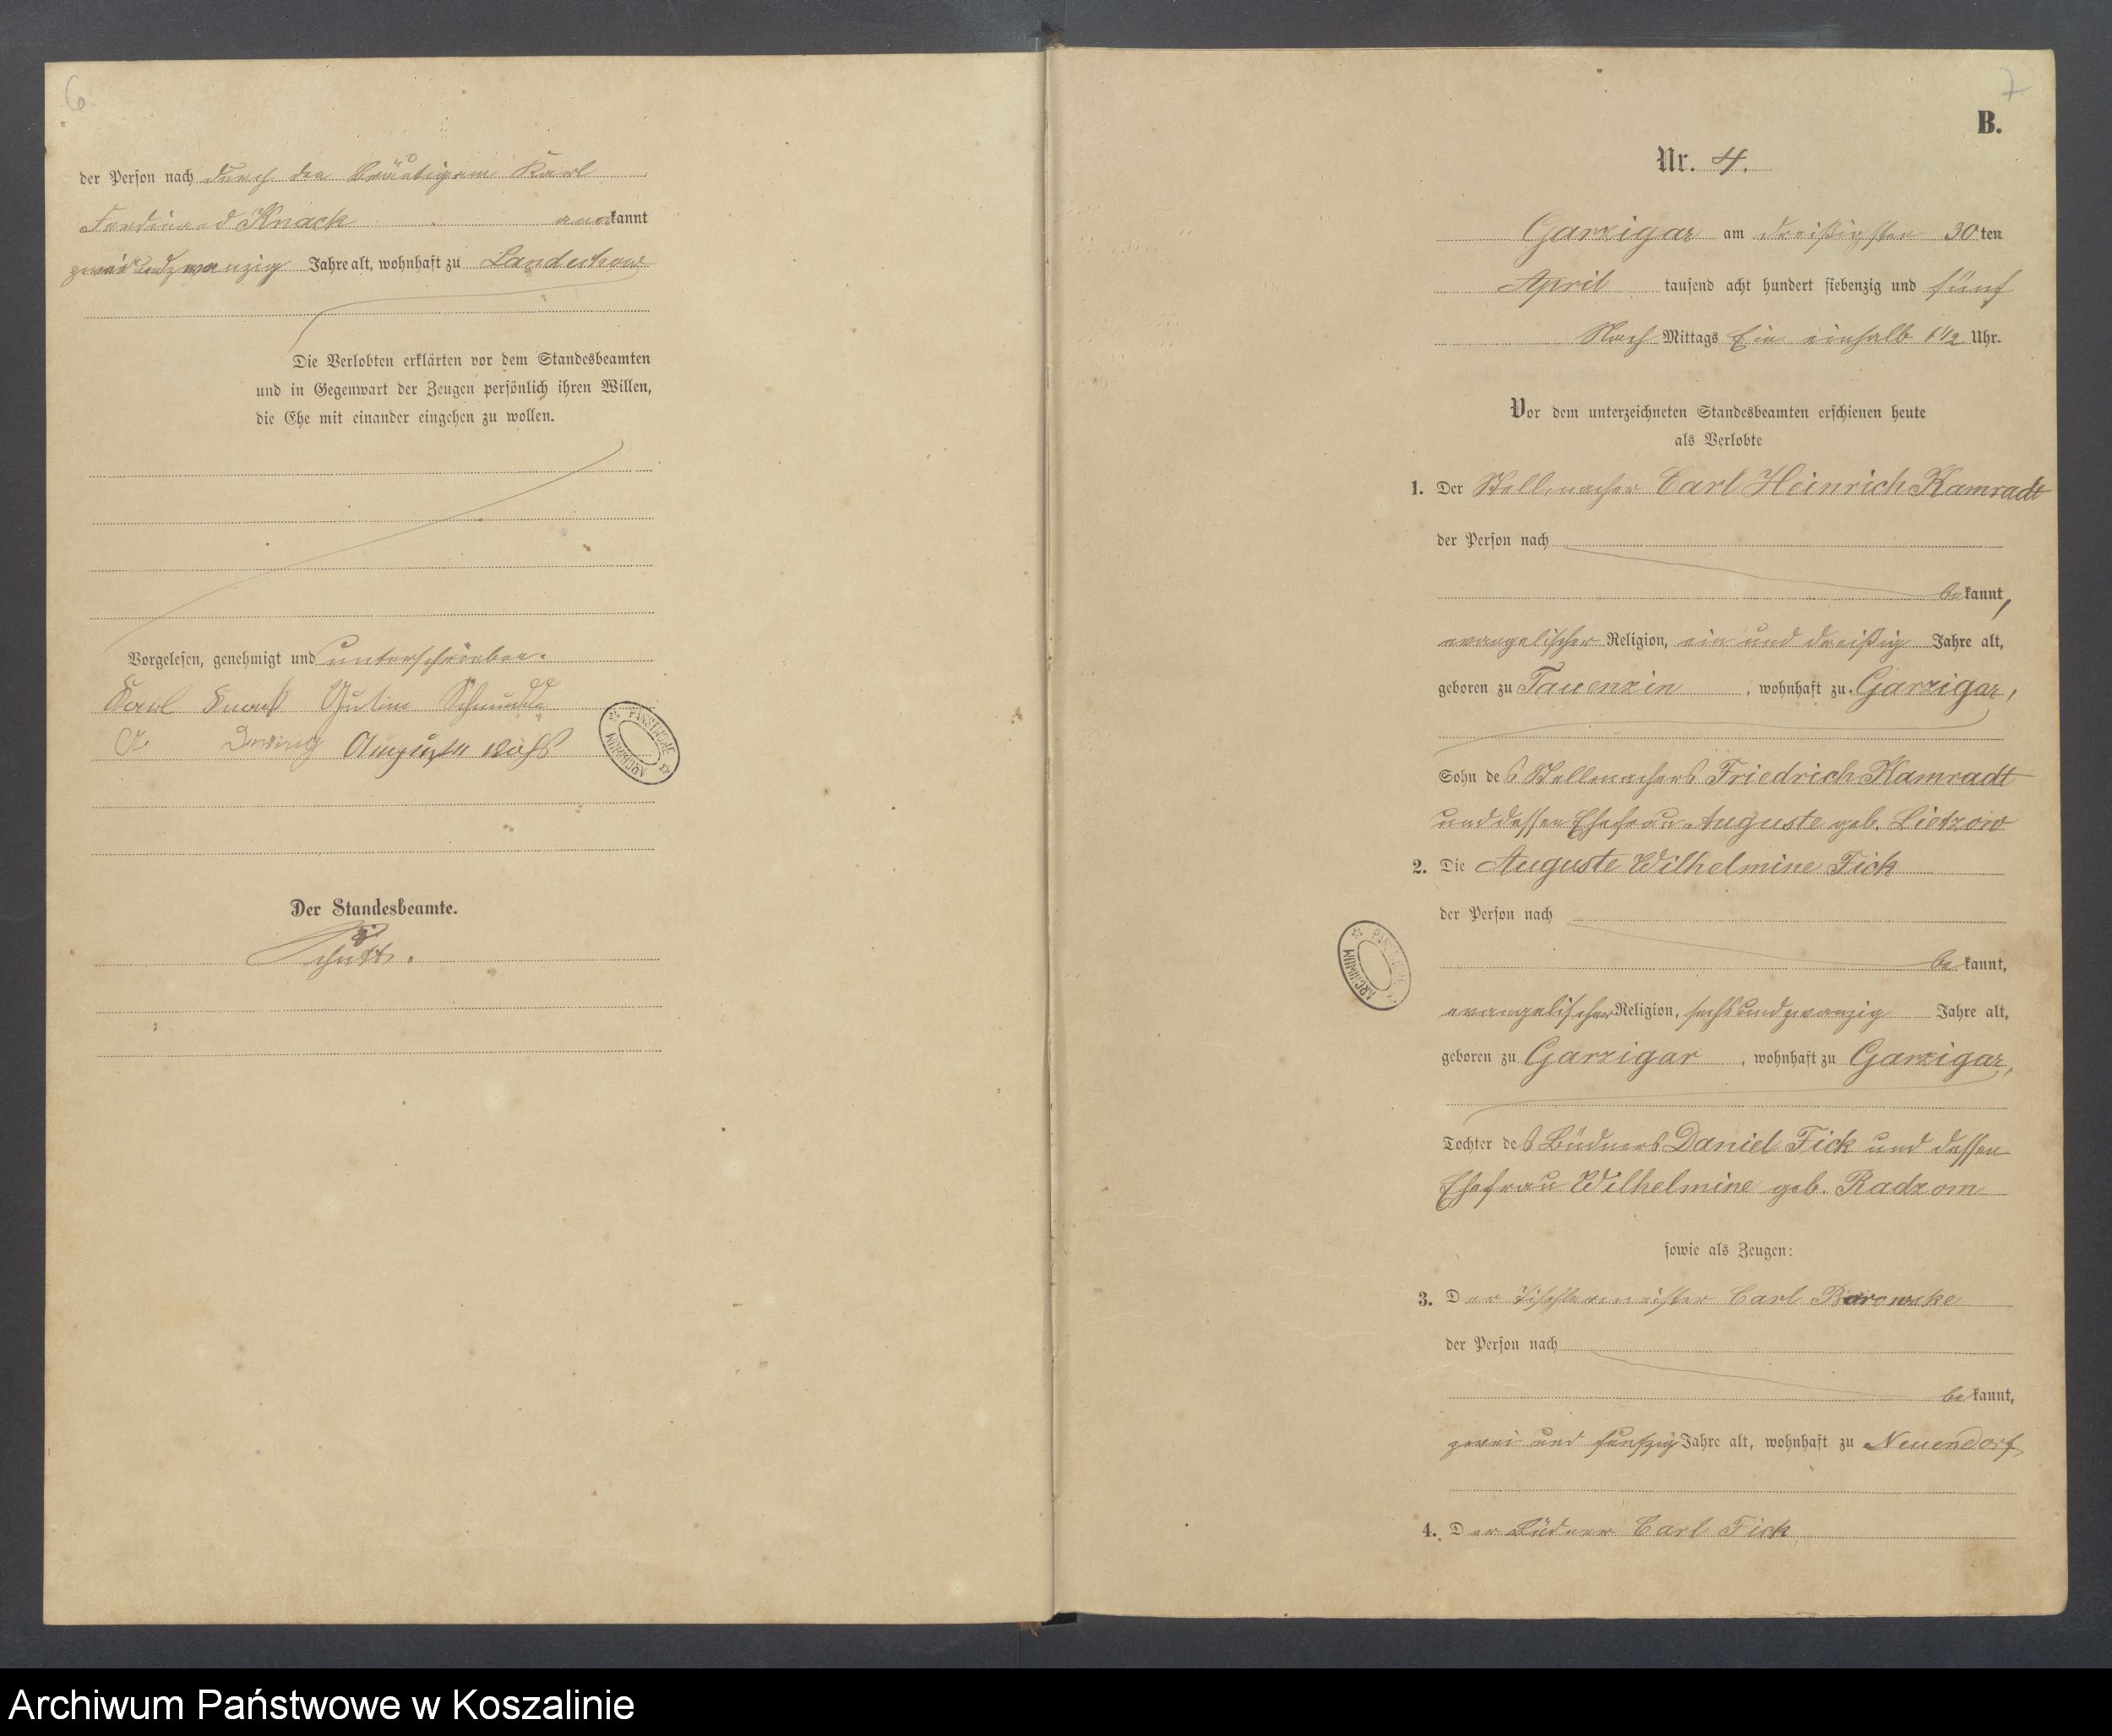 6
der Person nach durch den Bräutigam Karl
Ferdinand Knack anerkannt
zwei und zwanzig Jahre alt, wohnhaft zu Landechow
Die Verlobten erklärten vor dem Standesbeamten
und in Gegenwart der Zeugen persönlich ihren Willen,
die Ehe mit einander eingehen zu wollen.
Vorgelesen, genehmigt und unterschrieben.
Karl Knack
A. Auguste
ARCHIWUM PAŃSTWOWE
Der Standesbeamte.
7
B.
Nr. 4.
Garzigar am dreißigsten 30ten
April tausend acht hundert siebenzig und fünf
Nach Mittags Ein einhalb 1 1/2 Uhr.
Vor dem unterzeichneten Standesbeamten erschienen heute
als Verlobte
1. Der Stellmacher Carl Heinrich Kamradt
der Person nach
bekannt,
evangelischer Religion, ein und dreißig Jahre alt,
geboren zu Tauenzin, wohnhaft zu Garzigar,
Sohn des Stellmachers Friedrich Kamradt
und dessen Ehefrau Auguste geb. Lietzow
2. Die Auguste Wilhelmine Fick
der Person nach
bekannt,
ARCHIWUM PAŃSTWOWE
evangelischer Religion, sechs und zwanzig Jahre alt,
geboren zu Garzigar, wohnhaft zu Garzigar,
Tochter des Büdners Daniel Fick und dessen
Ehefrau Wilhelmine geb. Radzom
sowie als Zeugen:
3. Der Tischlermeister Carl Barowske
der Person nach
bekannt,
zwei und funfzig Jahre alt, wohnhaft zu Neuendorf
4. Der Büdner Carl Fick
Archiwum Państwowe w Koszalinie